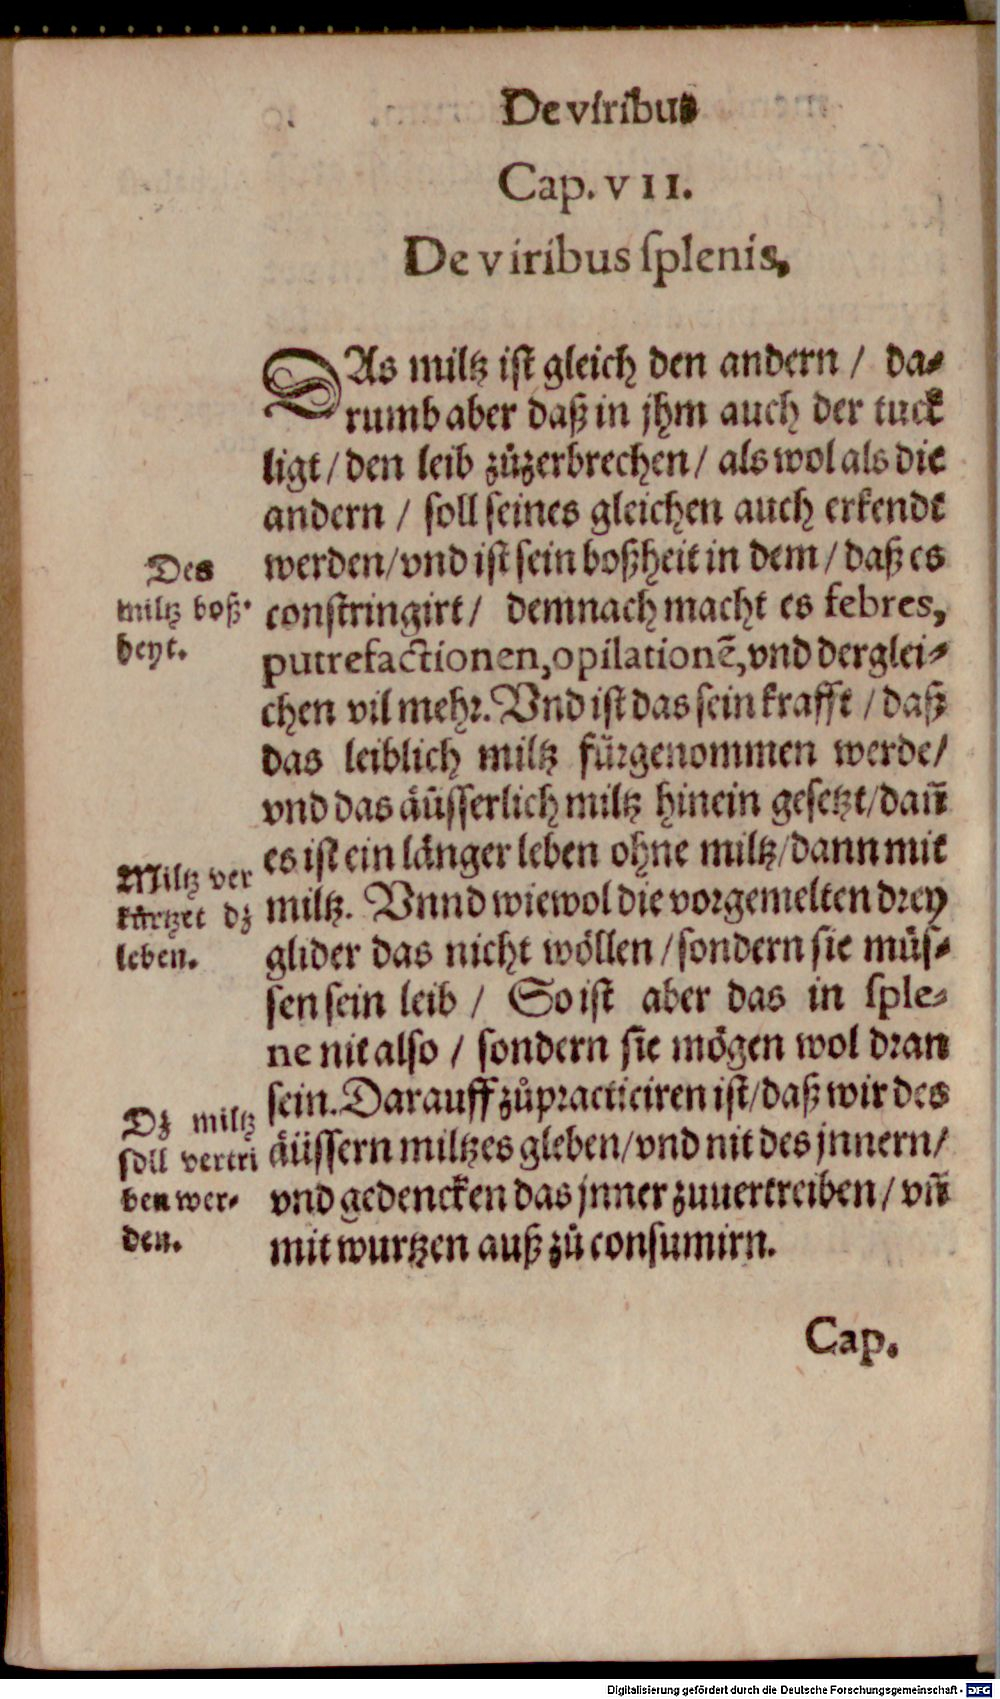 De viribus
Cap. VII.
De viribus ſplenis,
DAs miltz iſt gleich den andern / da-
rumb aber daß in jhm auch der tuck
ligt / den leib zůzerbrechen / als wol als die
andern / ſoll ſeines gleichen auch erkendt
werden / vnd iſt ſein boßheit in dem / daß es
conſtringirt / demnach macht es febres,
putrefactionen, opilationē, vnd derglei-
chen vil mehr. Vnd iſt das ſein krafft / daß
das leiblich miltz fürgenommen werde /
vnd das äüſſerlich miltz hinein geſetzt / dañ
es iſt ein länger leben ohne miltz / dann mit
miltz. Vnnd wiewol die vorgemelten drey
glider das nicht wöllen / ſondern ſie müſ-
ſen ſein leib / So iſt aber das in ſple-
ne nit alſo / ſondern ſie mögen wol dran
ſein. Darauff zůpracticiren iſt / daß wir des
äüſſern miltzes gleben / vnd nit des jnnern /
vnd gedencken das jnner zuuertreiben / vñ
mit wurtzen auß zů conſumirn.
Des
miltz boß-
heyt.
Miltz ver
kürtzet dz
leben.
Dz miltz
ſoll vertri
ben wer-
den.
Cap.
Digitalisierung gefördert durch die Deutsche Forschungsgemeinschaft - DFG